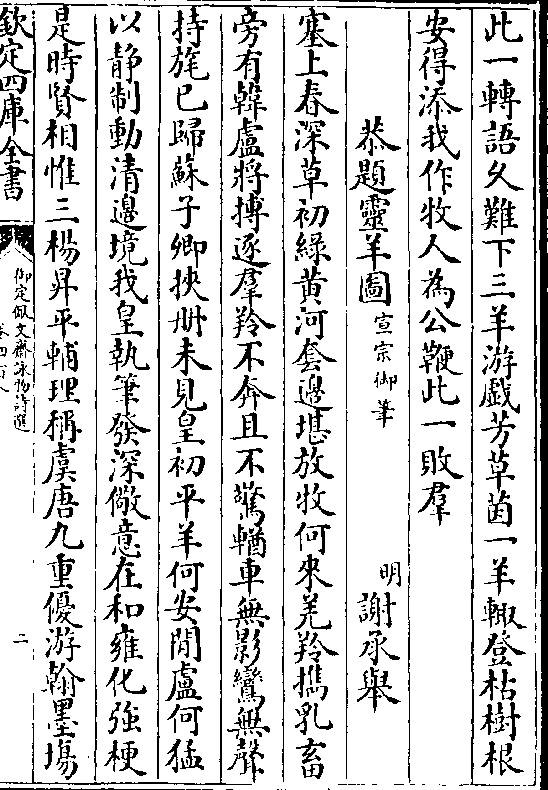 此一轉語久難下三羊游戲芳草茵一羊輙登枯樹根
安得添我作牧人為公鞭此一敗羣
恭題靈羊圖宣宗御筆 明謝承舉
塞上春深草初綠黄河套邊堪放牧何來羌羚攜乳畜
旁有韓盧將搏逐羣羚不奔且不驚輶車無影鸞無聲
持旄已歸蘇子卿挾冊未見皇初平羊何安閒盧何猛
以静制動清邊境我皇執筆發深儆意在和雍化強梗
是時賢相惟三楊昇平輔理稱虞唐九重優游翰墨塲
欽定四庫全書
御定佩文齋詠物詩選
二